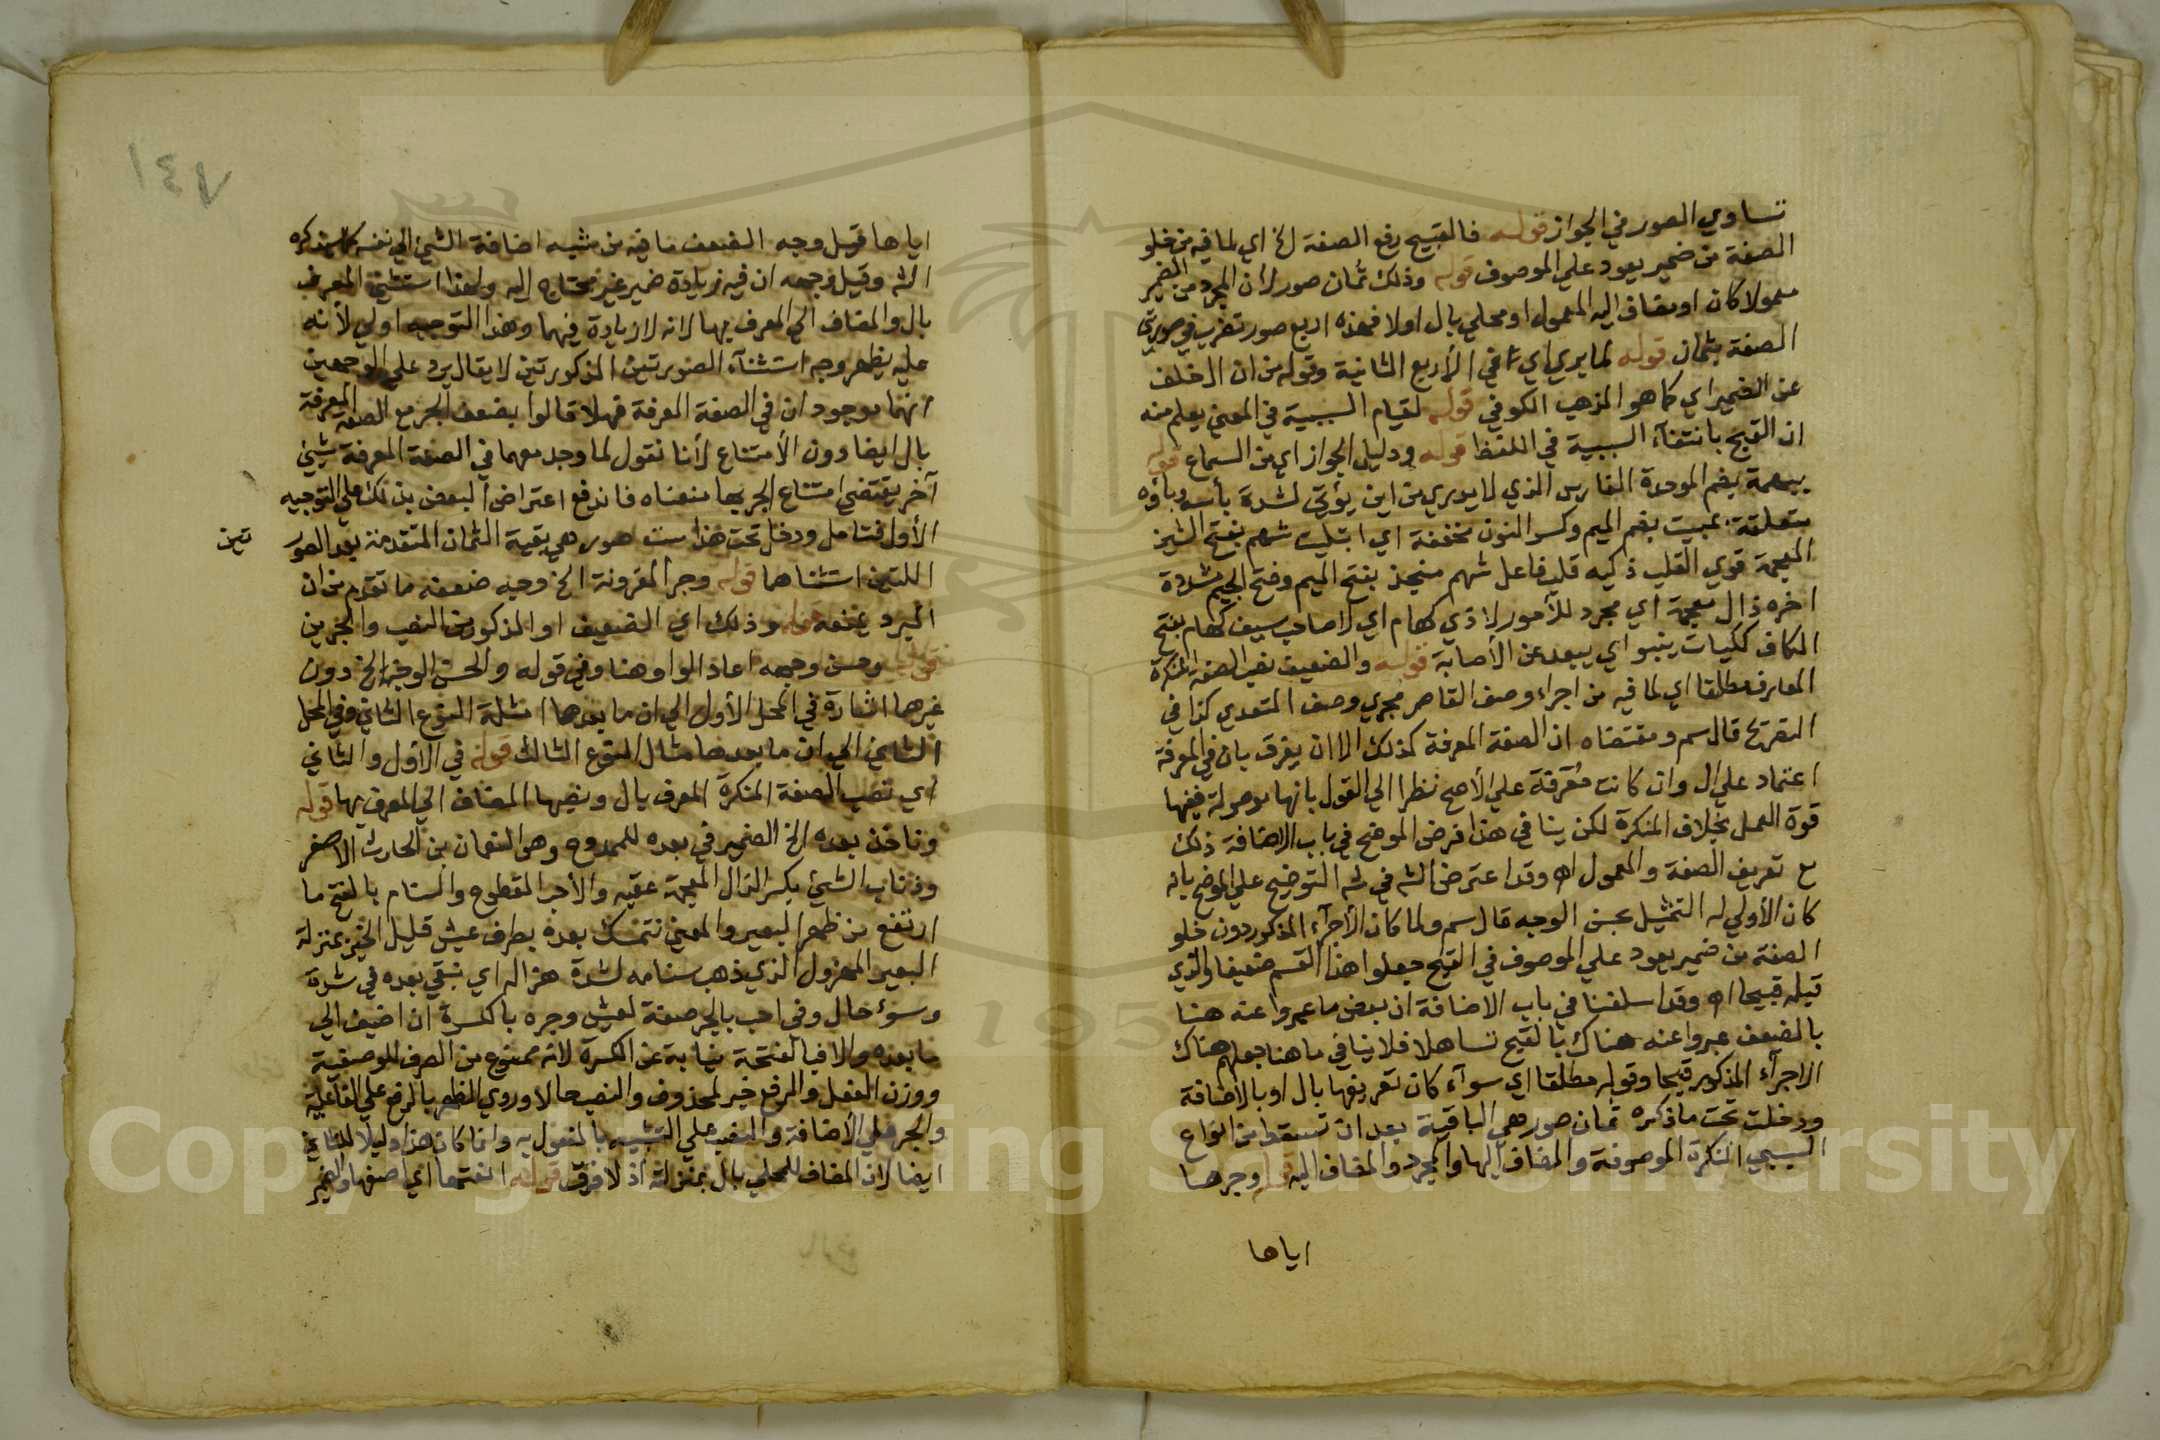 تساوي الصور في الجواز قوله فالقبيح رفع الصفة الخ اي لما فيه من خلو
الصفة من ضمير يعود علي الموصوف قوله وذلك ثمان صور لأن المجرد من الضمير
معمولا كان او مضاف اليه المعمول او محلي بال اولا فهذه اربع صور تضرب في صورتي
الصفة بثمان قوله لما يري اي تا في الأربع الثانية وقوله من ان ال خلف
عن الضمير اي كما هو المذهب الكوفي قوله لقيام السببية في المعني يعلم منه
ان القبح بانتفآء السببية في اللفظ قوله ودليل الجواز اي من السماع قوله
ببهمة بضم الموحدة الفارس الذي لا يدري من اين يؤتي لشدة بأسه وباؤه
متعلقة بمبيت بضم الميم وكسر النون مخففة اي ابتليت شهم بفتح الشين
المعجمة قوي القلب ذكيه قلبه فاعل شهم منجذ بفتح الميم وفتح الجيم مشددة
اخره ذال معجمة اي مجرد للأمور لا ذي كهام اي لا صاحب سيف كهام بفتح
الكاف ككيات ينبو اي يبعد عن الأصابة قوله والضعيف نصب الصفة المنكرة
المعارف مطلقا اي لما فيه من اجراء وصف القاصر مجري وصف المتعدي كذا في
التصريح قال سم ومقتضاه ان الصفة المعرفة كذلك الا ان يفرق بان في المعرفة
اعتماد علي ال وان كانت معرفة علي الأصح نظرا الي القول بانها موصولة ففيها
قوة العمل بخلاف المنكرة لكن ينافي هذا فرض الموضح في باب الاضافة ذلك
مع تعريف الصفة والمعمول اه وقد اعترض الش في ش التوضيح علي الموضح بانه
كان الأولي له التمثيل بحسن الوجه قال سم ولما كان الأجرآء المذكور دون خلو
الصفة من ضمير يعود علي الموصوف في القبح جعلوا هذا القسم ضعيفا والذي
قبله قبيحا اه وقد اسلفنا في باب الاضافة ان بعض ما عبروا عنه هنا
بالضعيف عبروا عنه هناك بالقبيح تساهلا فلا ينافي ما هنا جعلهم هناك
الاجرآء المذكور قبيحا وقوله مطلقا اي سوآء كان تعريفها بال او بالاضافة
ودخلت تحت ما ذكره ثمان صور هي الباقية بعد ان تسقط من انواع
السببي النكرة الموصوفة والمضاف اليها والمجرد والمضاف اليه قوله وجرها
اياها
١٤٧
اياها قيل وجه الضعف ما فيه من شبه اضافة الشيئ الي نفسه كما سيذكره
الش وقيل وجهه ان فيه زيادة ضمير غير محتاج اليه ولهذا استثني المعرف
بال والمضاف الي المعرف بها لانه لا زيادة فيهما وهذا التوجيه اولي لأنه
عليه يظهر وجه استثنآء الصورتين المذكورتين لا يقال يرد علي الوجهين
انهما موجودان في الصفة المعرفة فهلا قالوا بضعف الجر مع الصفة المعرفة
بال ايضا دون الأمتناع لأنا نقول لما وجد معهما في الصفة المعرفة شيئ
آخر يقتضي امتناع الجر بها منعناه فاندفع اعتراض البعض بذلك علي التوجيه
الأول فتامل ودخل تحت هذا ست صور هي بقية الثمان المتقدمة بعد الصور
تين
اللتين استثناهما قوله وجر المقرونة الخ وجه ضعفه ما تقدم من ان
المبرد يمنعه قوله وذلك اي الضعيف او المذكور من النصب والجرين
قوله وحسن وجهه اعاد الواو هنا وفي قوله والحسن الوجه الخ دون
غيرها اشارة في المحل الأول الي ان ما بعدها امثلة النوع الثاني وفي المحل
الثاني الي ان ما بعدها مثال النوع الثالث قوله في الاول والثاني
اي نصب الصفة المنكرة المعرف بال ونصبها المضاف الي المعرف بها قوله
وناخذ بعده الخ الضمير في بعده للممدوح وهو النعمان بن الحارث الاصغر
وذناب الشيئ بكسر الذال المعجمة عقبه والأجب المقطوع والسنام بالفتح ما
ارتفع من ظهر البعير والمعني نتمسك بعده بطرف عيش قليل الخير بمنزلة
البعير المهزول الذي ذهب سنامه لشدة هزاله اي نبقي بعده في شدة
وسوء حال وفي احب بالجر صفة لعيش وجره بالكسرة ان اضيف الي
ما بعده والا فبالفتحة نيابة عن الكسرة لانه ممنوع من الصرف للوصفية
ووزن الفعل والرفع خبر لمحذوف والنصب حالا وروي الظهر بالرفع علي الفاعلية
والجر علي الأضافة والنصب علي التشبيه بالمفعول به وانما كان هذا دليلا للثاني
ايضا لان المضاف للمحلي بال بمنزلته اذ لا فرق قوله انعتها اي اصفها والضمير